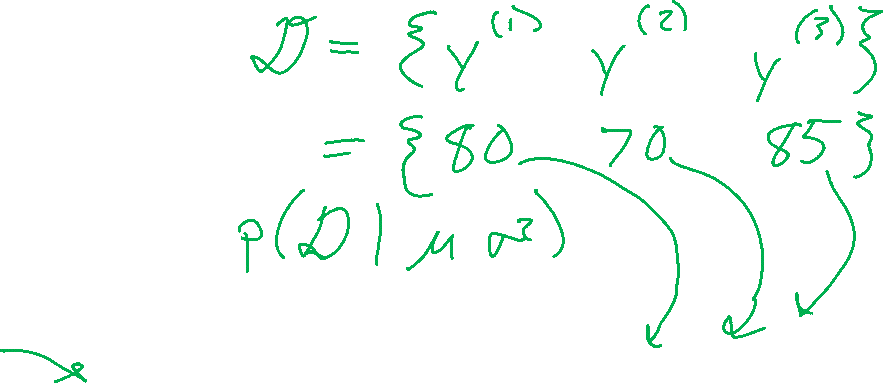 D = { y^(1) y^(2) y^(3) }
= { 80 70 85 }
p(D | μ σ²)